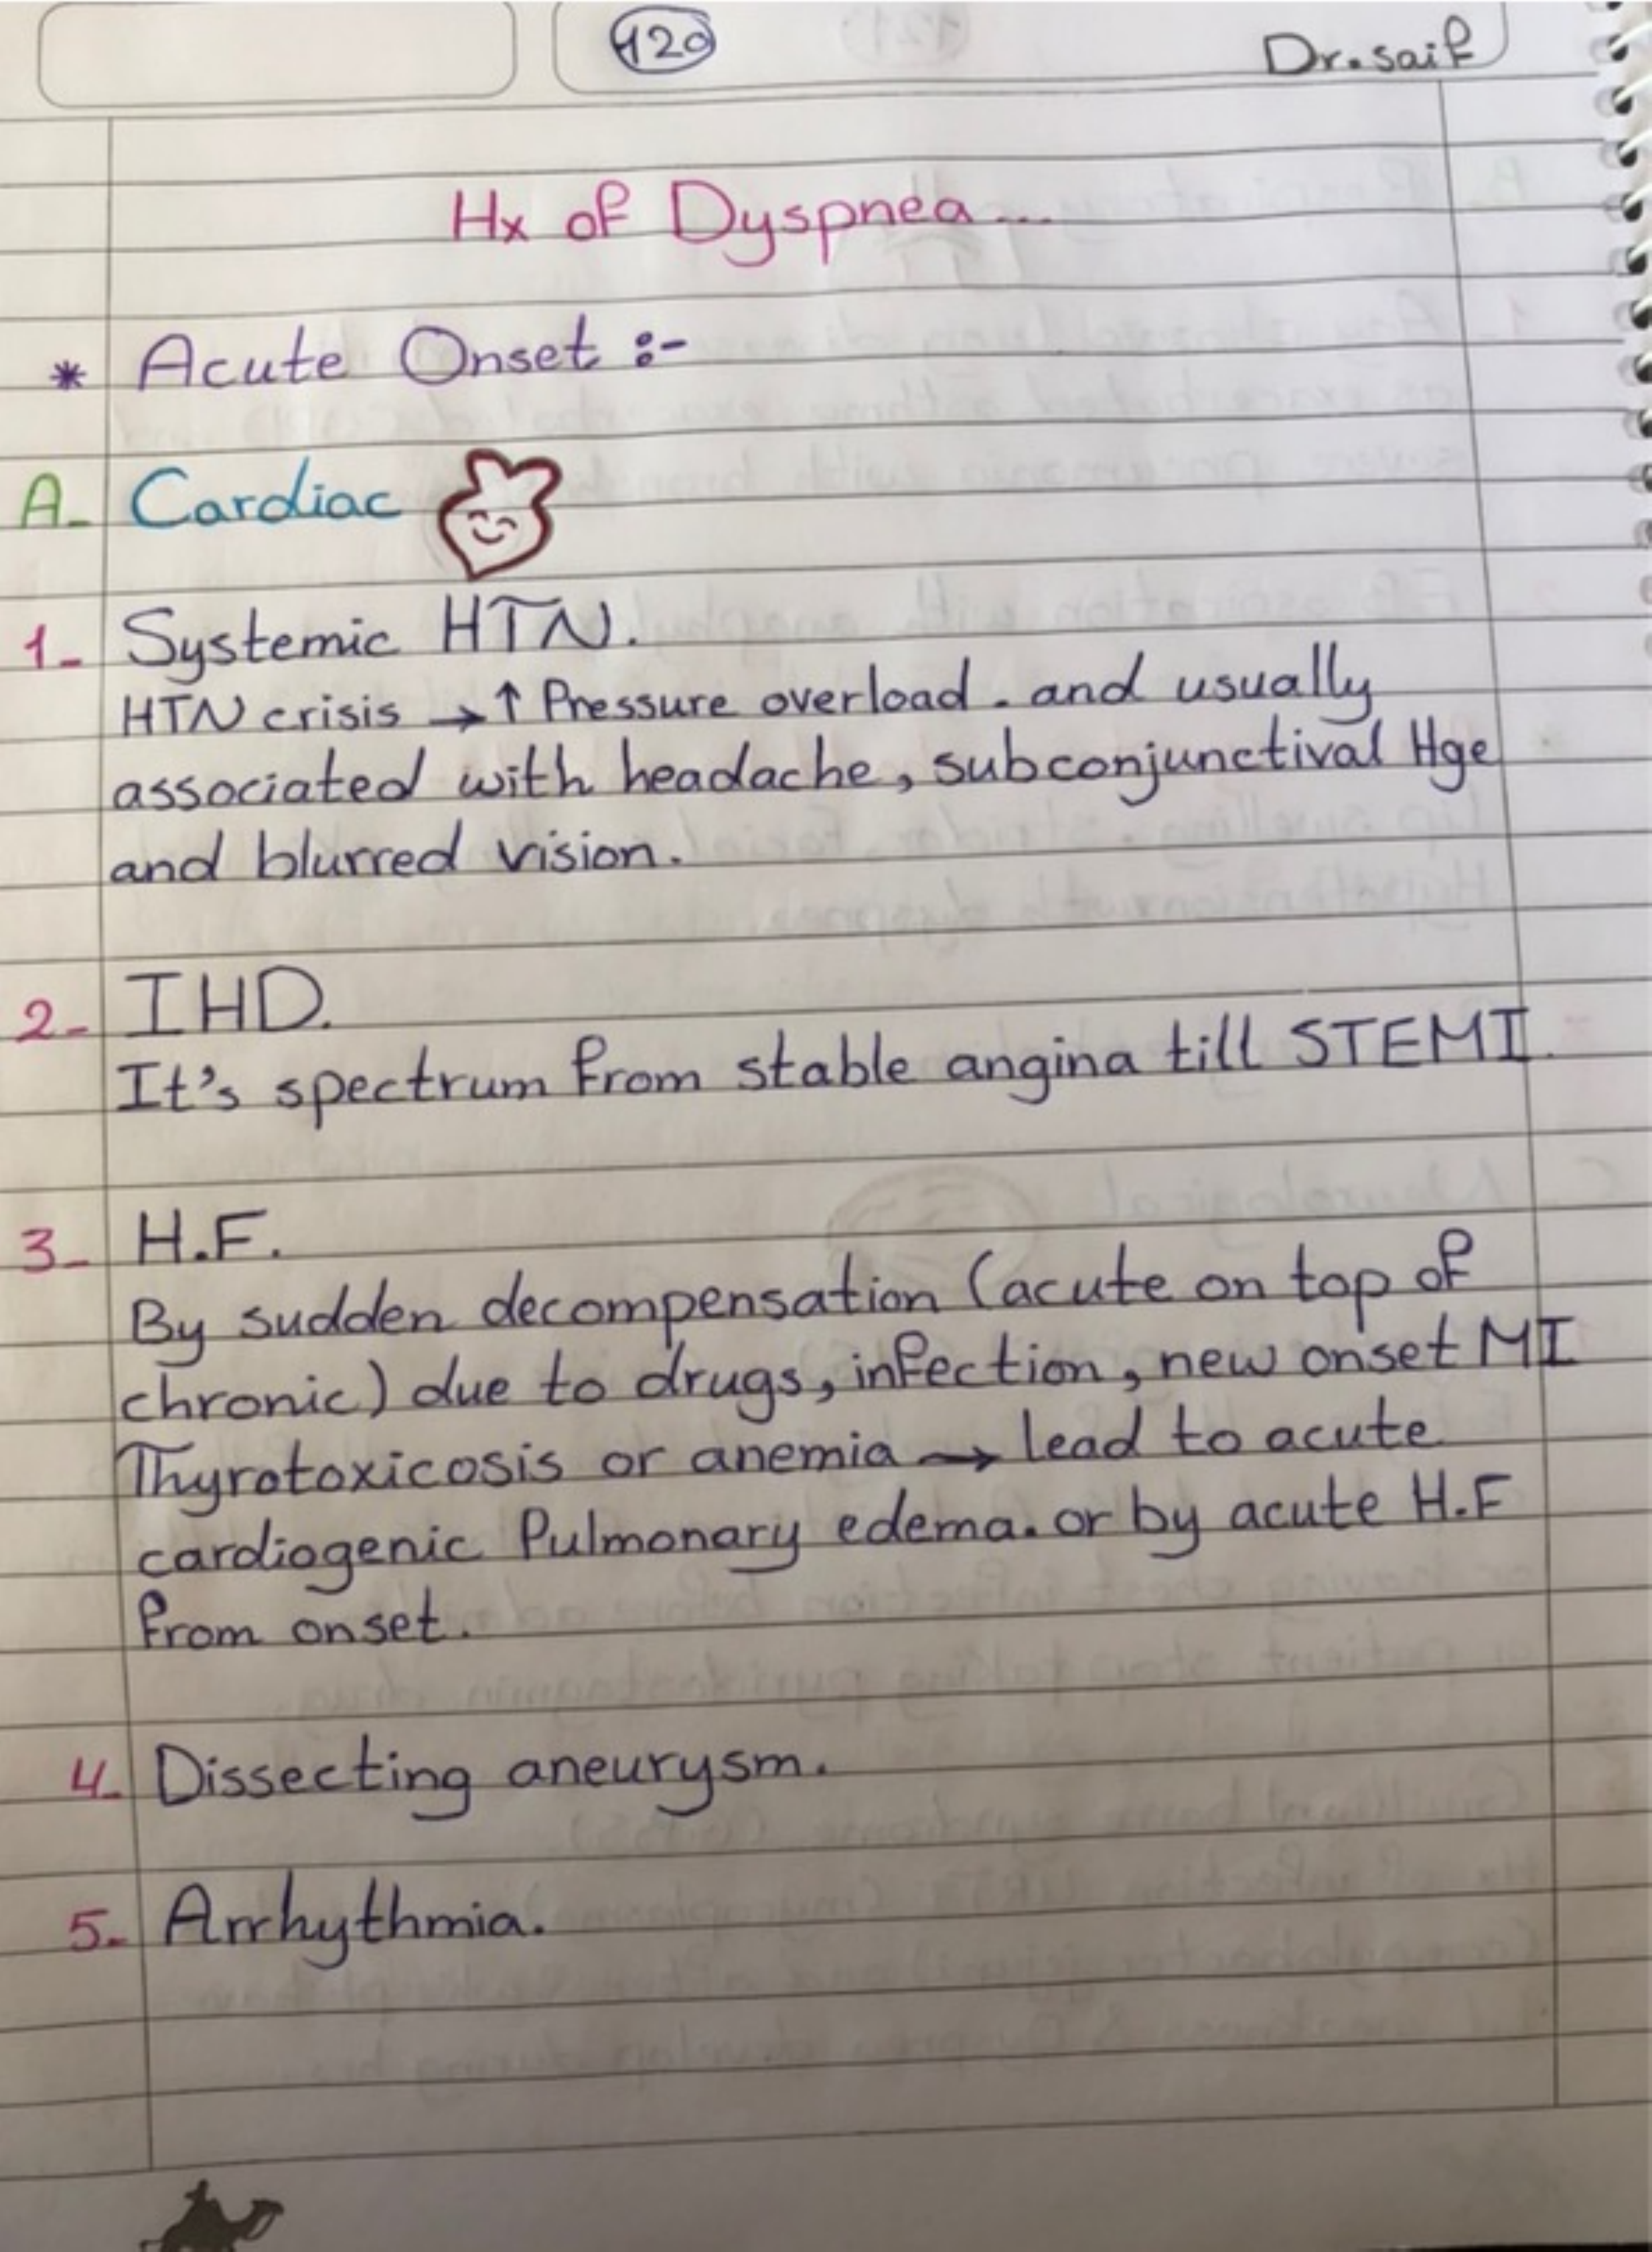 120
Dr. saif
Hx of Dyspnea...
* Acute Onset :-
A- Cardiac
1- Systemic HTN.
HTN crisis → ↑ Pressure overload. and usually
associated with headache, subconjunctival Hge
and blurred vision.
2- IHD.
It's spectrum from stable angina till STEMI.
3- H.F.
By sudden decompensation (acute on top of
chronic) due to drugs, infection, new onset MI
Thyrotoxicosis or anemia → lead to acute
cardiogenic Pulmonary edema. or by acute H.F
from onset.
4- Dissecting aneurysm.
5- Arrhythmia.